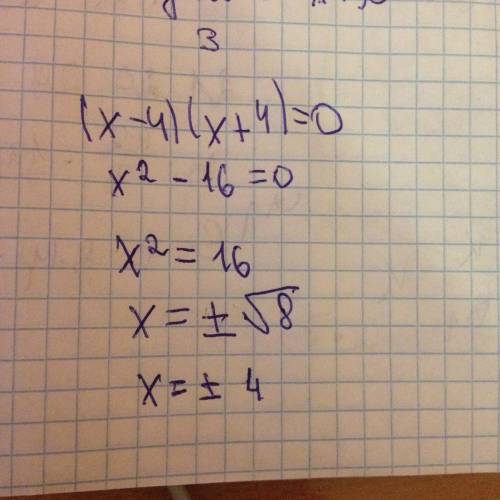 3
(x-4)(x+4)=0
x² - 16 = 0
x² = 16
x = ± √8
x = ± 4